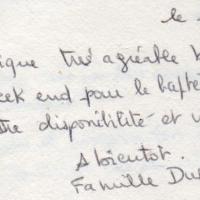 le
ique très agréable
eek end pour le baptê
tre disponibilité et v
A bientôt.
Famille Du